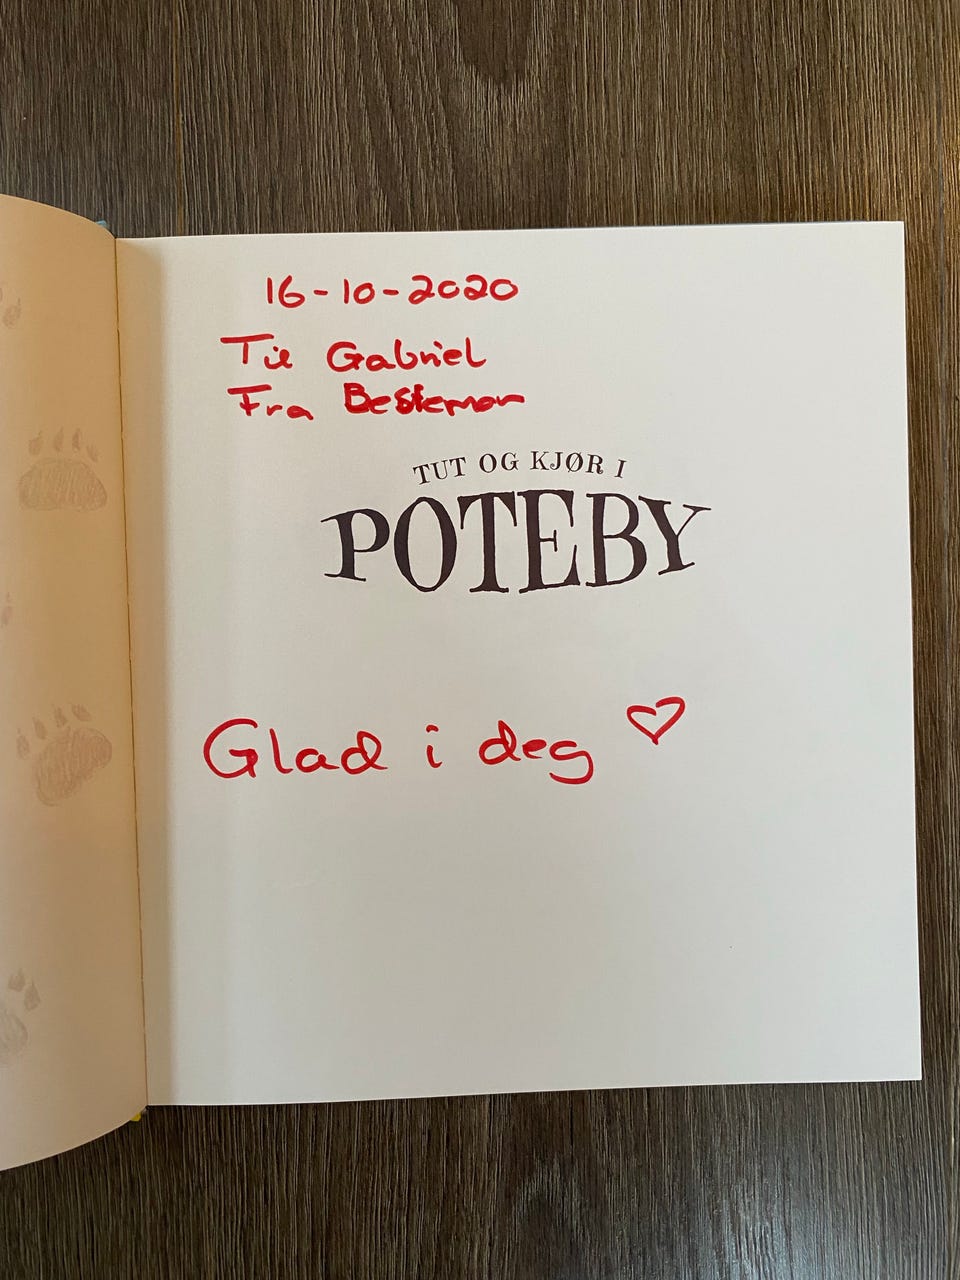 16-10-2020
Til Gabriel
Fra Bestemor
TUT OG KJØR I
POTEBY
Glad i deg ♡